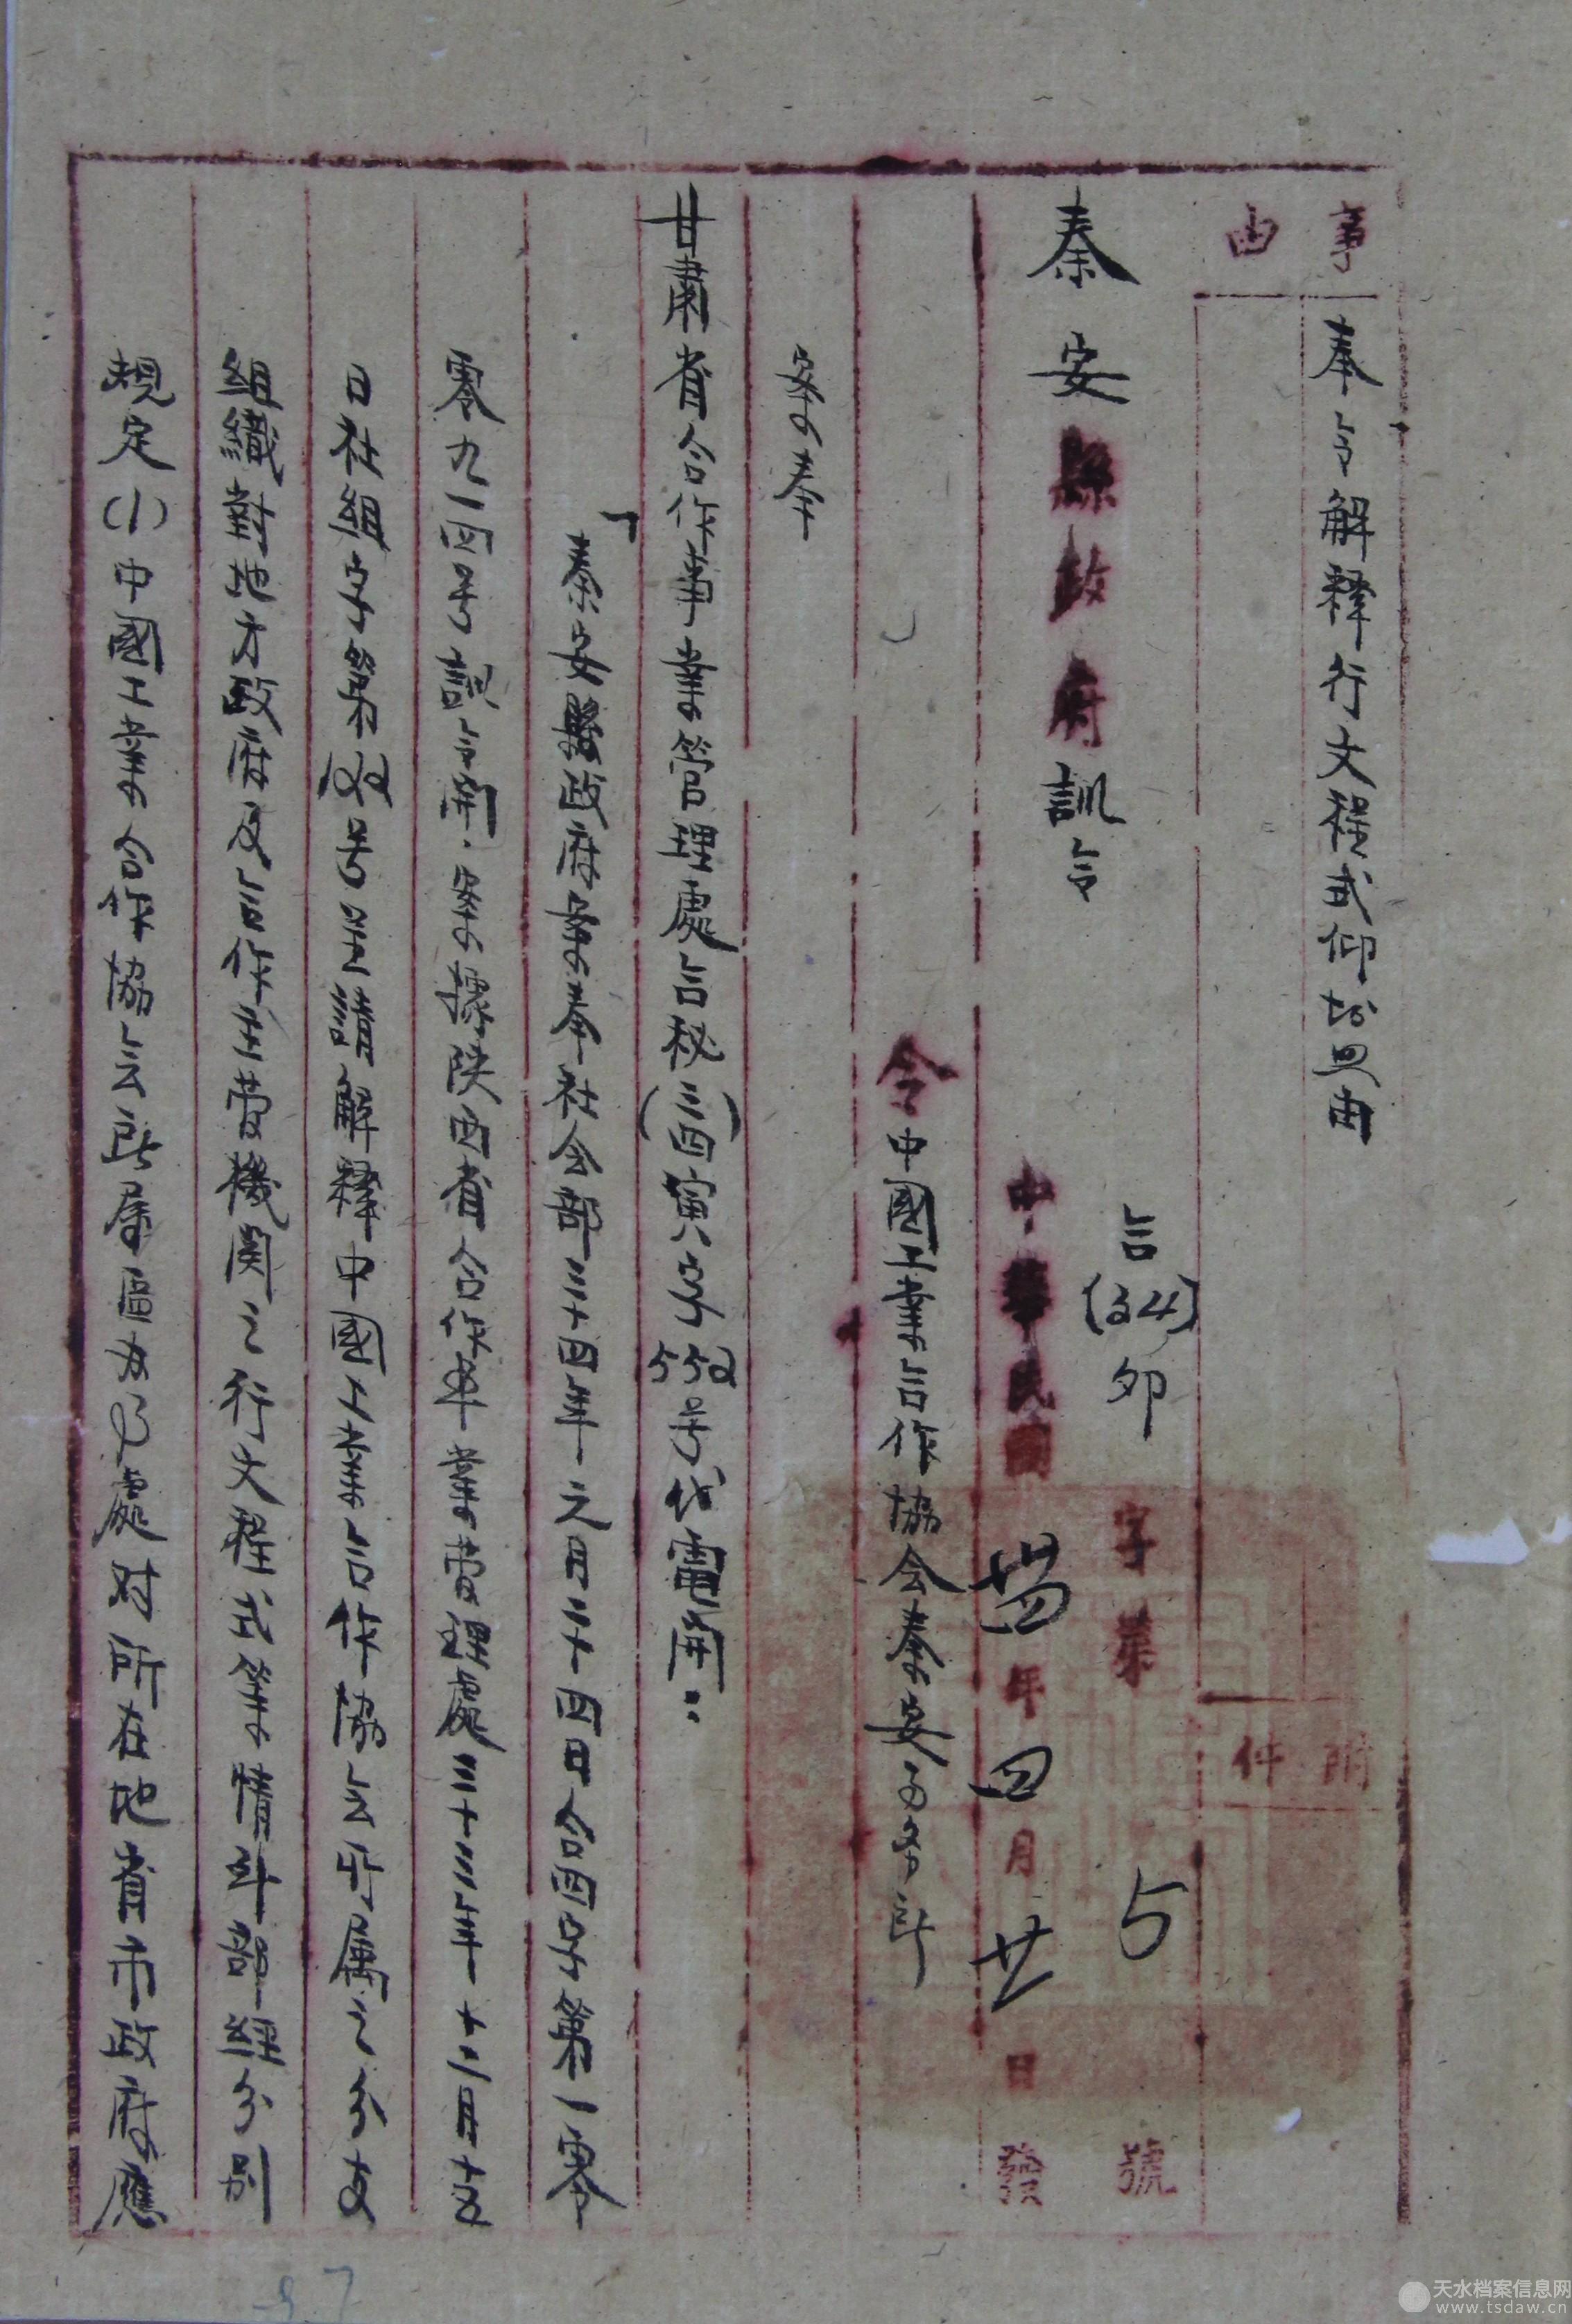 事由
奉令解釋行文程式仰知照由
附件
秦安縣政府訓令
合(34)卯字第5號
中華民國卅四年四月廿日發
令中國工業合作協会秦安事務所
案奉
甘肅省合作事業管理處合秘(三四)寅字號代電開：
「秦安縣政府案奉社会部三十四年元月三十四日合四字第一零
零九一四号訓令開．案據陝西省合作事業管理處三十三年十二月十
日社組字第号呈請解釋中國工業合作協会所属之分支
組織對地方政府及合作主管機関之行文程式等情到部經分別
規定(1)中國工業合作協会所屬區办事處对所在地省市政府應
天水档案信息网
www.tsdaw.cn